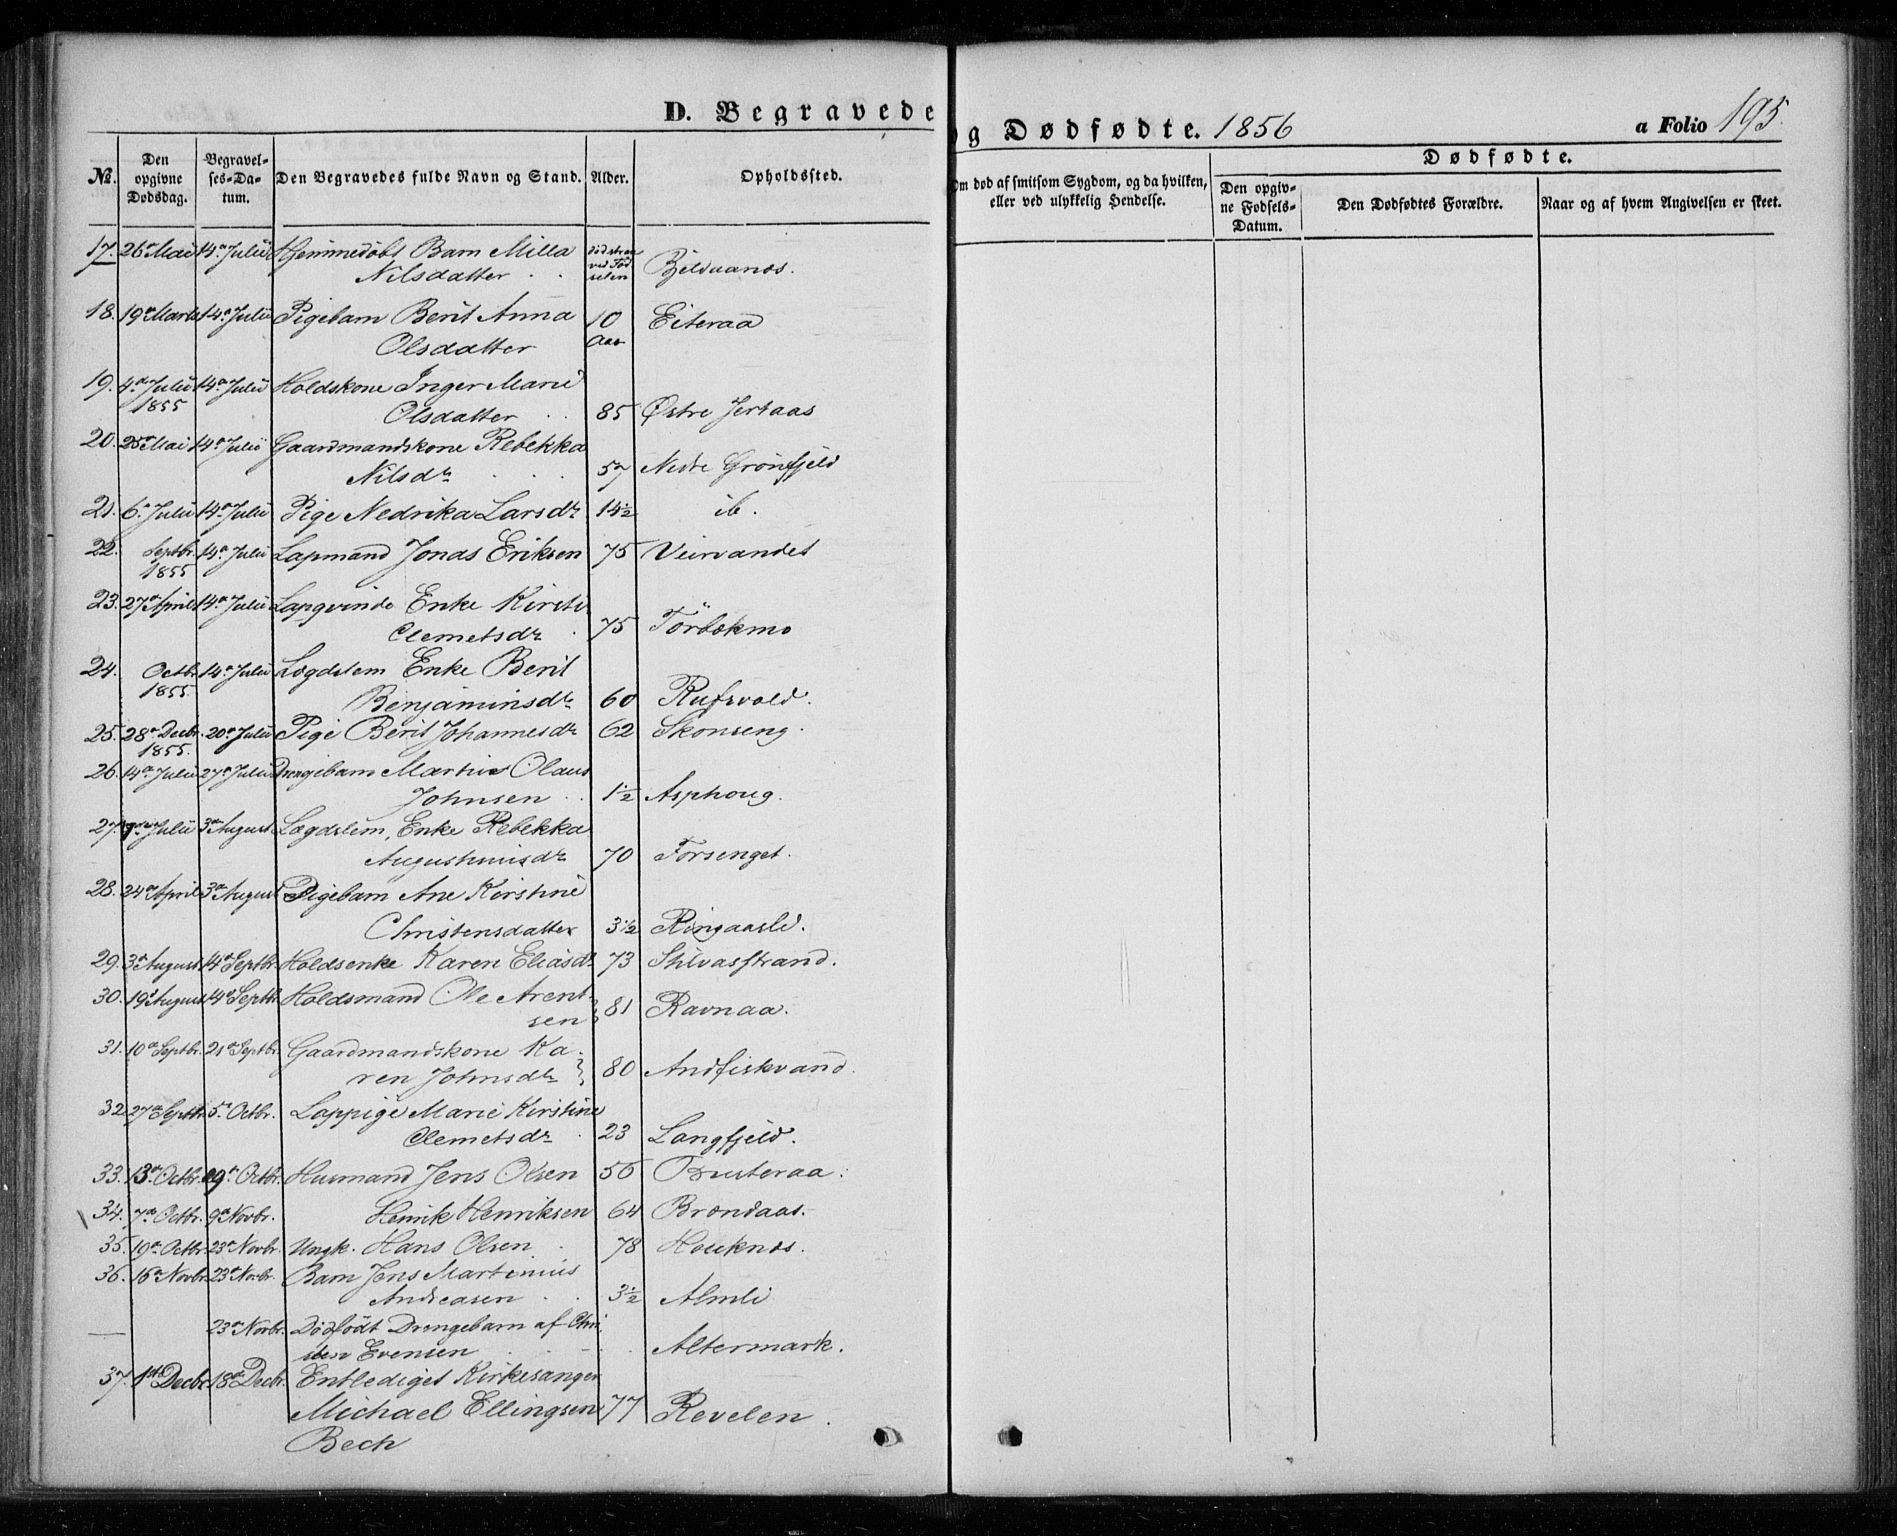 D. Begravede og Dødfødte. 1856 a Folio 195.
No. Den opgivne Dødsdag. Begravelses-Datum. Den Begravedes fulde Navn og Stand. Alder. Opholdssted. Om død af smitsom Sygdom, og da hvilken, eller ved ulykkelig Hendelse. Dødfødte.
Den opgivne Fødsels-Datum. Den Dødfødtes Forældre. Naar og af hvem Angivelsen er skeet.
17. 26de Mai 14de Julii Hjemmedøbt Barn Milla
Nilsdatter ved Fødselen
18. 19de Marts 14de Julii Pigebarn Berit Anna 10 Eiteraa
Olsdatter Aar
19. 4de Julii 14de Julii Holdskone Inger Marie
1855 Olsdatter 85 Østre Jertaas
20. 25de Mai 14de Julii Gaardmandskone Rebekka
Nilsdr 57 Nedre Grönfjeld
21. 6. Julii 14de Julii Pige Nedrika Larsdr 14½ ib.
22. Septbr. 14de Julii Lapmand Jonas Eriksen 75 Veirvandet
1855
23. 27de April 14de Julii Lapqvinde Enke Kirsti
Clemetsdr 75 Törbekmo
24. Octbr. 14de Julii Lægdslem Enke Berit
1855. Benjaminsdr 60 Rufsvold.
25. 28de Decbr. 20de Julii Pige Berit Johannesdr 62 Skonseng.
1855.
26. 14de Julii 27de Julii Drengebarn Martin Olaus
Johnsen 1½ Asphoug.
27. Julii 3de August Lægdslem, Enke Rebekka
Augustinusdr 70 Forsenget.
28. 24de April 3de August Pigebarn Ane Kirstine
Christensdatter 3½ Ringaasli.
29. 3de August 14de Septbr. Holdsenke Karen Eliasdr 73 Stilvasstrand.
30. 19de August 14de Septbr. Holdsmand Ole Arent-
sen 81 Ravnaa.
31. 10de Septbr. 21de Septbr. Gaardmandskone Ka-
ren Johnsdr 80 Andfiskvand.
32. 27de Septbr. 5te Octbr. Lappige Marie Kirstine
Clemetsdr 23 Langfjeld.
33. 13de Octbr. 19de Octbr. Husmand Jens Olsen 56 Busteraa.
34. 7de Octbr. 9de Novbr. Henrik Henriksen 64 Brændaas.
35. 19de Octbr. 23de Novbr. Ungk. Hans Olsen 78 Houknæs.
36. 16de Novbr. 23de Novbr. Barn Jens Martinius
Andreasen 3½ Almli
23de Novbr. Dödfödt Drengebarn af Chri-
sten Evensen Altermark.
37. 1ste Decbr. 18de Decbr. Entlediget Kirkesanger
Michael Ellingsen 77 Revelen.
Bech